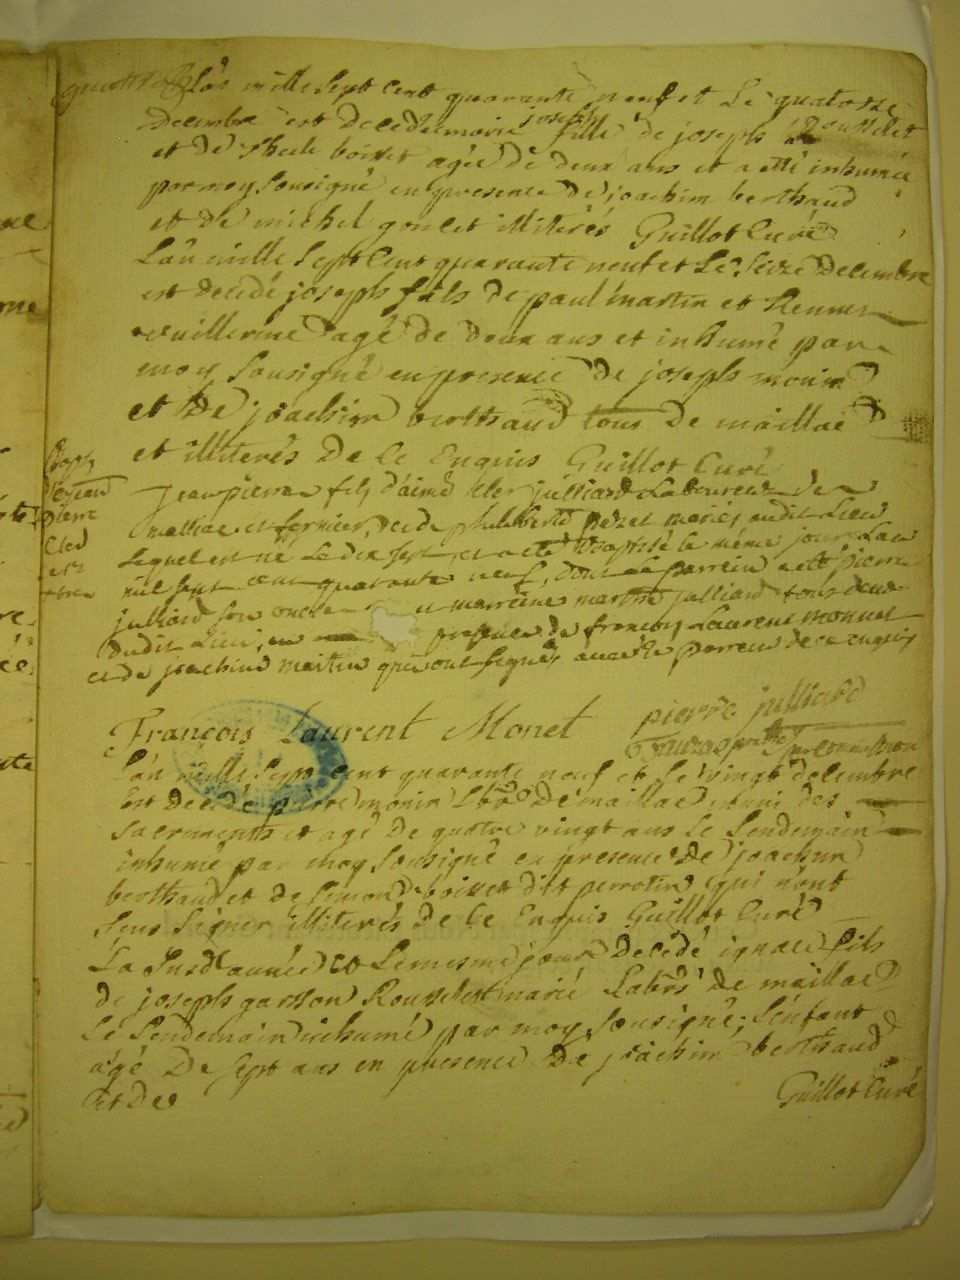 L'an mille Sept Cent quarante neuf et Le quatorze
Decembre est Decedé marie joseph fille de joseph Rousselet
et de boisset agée de deux ans et a etté inhumée
par moy Sousigné en presence de joachim berthaud
et de michel goulet illiterés Guillot Curé
L'an mille Sept Cent quarante neuf et Le Seize Decembre
est decedé joseph fils de paul martin et
vuillerme agé de deux ans et inhumé par
moy Sousigné en presence de joseph monin
et De joachim berthaud tous de maillac
et illiterés De Ce Enquis Guillot Curé
Bapt
De jean
pierre
Cler
jean pierre fils d'aimé Cler julliard Laboureur de
malliac et fermier, et de philiberte perret mariés audit Lieu
Lequel est né Le dix sept et a eté Baptisé le même jour Lan
mil sept cent quarante neuf, dont le parrein a etté pierre
julliard son oncle et marreine martine julliard tous deux
dudit Lieu, en presence de françois Laurent monnet
et de joachim martin qui ont signés avec le parrein de ce enquis
François Laurent Monet pierre julliard
L'an mille Sept Cent quarante neuf et Le vingt decembre
Est Decedé pierre monin Lbr De maillac muni des
Sacrements et agé De quatre vingt ans Le Lendemain
inhumé par moy Sousigné en presence De joachim
berthaud et de Simon boisset dit perrotin qui n'ont
Seus Signer illiterés de Ce Enquis Guillot Curé
La Susd année et Le mesme jour Decedé ignace fils
de joseph garsson Rousselet marié Labrs de maillac
Le Lendemain inhumé par moy Sousigné; L'enfant
âgé De Sept ans en presence De joachim berthaud
et De
Guillot Curé